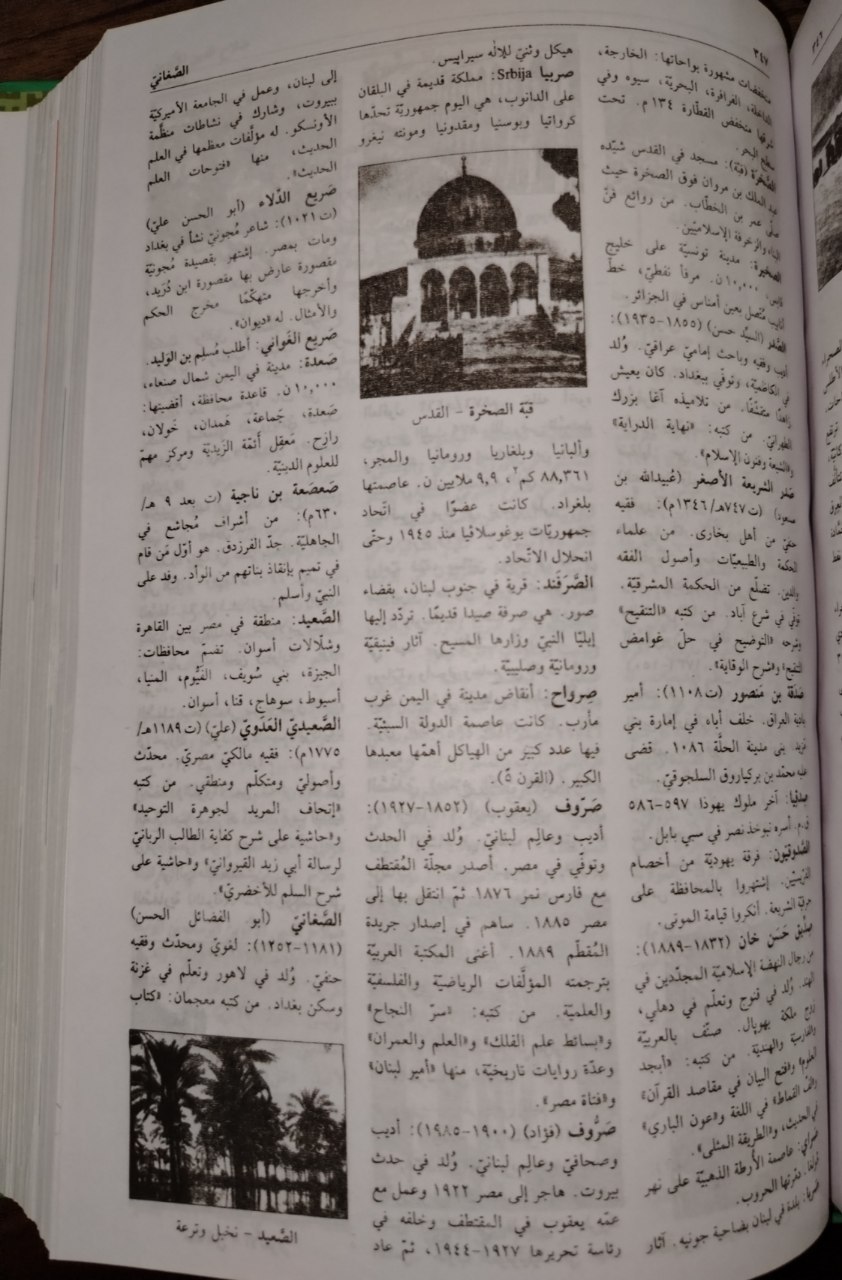 ٣٤٧
الصَّغانيّ
منخفضات مشهورة بواحاتها: الخارجة،
الداخلة، الفرافرة، البحريّة، سيوه وفي
شرقها منخفض القطّارة ١٣٤ م. تحت
سطح البحر.
الصَّخرة (قبّة): مسجد في القدس شيّده
عبد الملك بن مروان فوق الصخرة حيث
صلّى عمر بن الخطّاب. من روائع فنّ
البناء والزخرفة الإسلاميّين.
الصخيرة: مدينة تونسيّة على خليج
قابس. ١٠,٠٠٠ ن. مرفأ نفطيّ، خطّ
أنابيب مُتّصل بعين أمناس في الجزائر.
الصَّدْر (السيّد حسن) (١٨٥٥-١٩٣٥):
أديب وفقيه وباحث إماميّ عراقيّ. وُلد
في الكاظميّة، وتوفّي ببغداد. كان يعيش
زاهدًا متقشّفًا. من تلاميذه آغا بزرك
الطهرانيّ. من كتبه: «نهاية الدراية»
و«الشيعة وفنون الإسلام».
صَدْر الشريعة الأصغر (عُبيدالله بن
مسعود) (ت٧٤٧هـ/١٣٤٦م): فقيه
حنفيّ من أهل بخارى. من علماء
الحكمة والطبيعيّات وأصول الفقه
والدين. تضلّع من الحكمة المشرقيّة.
توفّي في شرع آباد. من كتبه «التنقيح»
وشرحه «التوضيح في حلّ غوامض
التنقيح» و«شرح الوقاية».
صَدَقَة بن مَنصور (ت١١٠٨): أمير
بادية العراق. خلف أباه في إمارة بني
مَزيد. بنى مدينة الحلّة ١٠٨٦. قضى
عليه محمّد بن بركياروق السلجوقيّ.
صِدقيا: آخر ملوك يهوذا ٥٩٧-٥٨٦
ق.م. أسره نبوخذ نصر في سبي بابل.
الصَّدوقيّون: فرقة يهوديّة من أخصام
الفرّيسيّين. إشتهروا بالمحافظة على
حرفيّة الشريعة. أنكروا قيامة الموتى.
صِدّيق حَسَن خان (١٨٣٢-١٨٨٩):
من رجال النهضة الإسلاميّة المجدّدين في
الهند. وُلد في قنوج وتعلّم في دهلي،
تزوّج ملكة بهوبال. صنّف بالعربيّة
والفارسيّة والهنديّة. من كتبه: «أبجد
العلوم» و«فتح البيان في مقاصد القرآن»
و«لفّ القماط» في اللغة و«عون الباري»
في الحديث، و«الطريقة المثلى».
صَراي: عاصمة الأُرطة الذهبيّة على نهر
الفولغا. دمّرتها الحروب.
صَربا: بلدة في لبنان بضاحية جونيه. آثار
هيكل وثنيّ للإلٰه سيرابيس.
صربيا Srbija: مملكة قديمة في البلقان
على الدانوب، هي اليوم جمهوريّة تحدّها
كرواتيا وبوسنيا ومقدونيا ومونته نيغرو
قبّة الصخرة - القدس
وألبانيا وبلغاريا ورومانيا والمجر،
٨٨,٣٦١ كم٢، ٩,٩ ملايين ن. عاصمتها
بلغراد. كانت عضوًا في اتّحاد
جمهوريّات يوغوسلافيا منذ ١٩٤٥ وحتّى
انحلال الاتّحاد.
الصَّرَفَند: قرية في جنوب لبنان، بقضاء
صور. هي صرفة صيدا قديمًا. تردّد إليها
إيليّا النبيّ وزارها المسيح. آثار فينيقيّة
ورومانيّة وصليبيّة.
صِرواح: أنقاض مدينة في اليمن غرب
مأرب. كانت عاصمة الدولة السبئيّة.
فيها عدد كبير من الهياكل أهمّها معبدها
الكبير. (القرن ٥).
صَرّوف (يعقوب) (١٨٥٢-١٩٢٧):
أديب وعالِم لبنانيّ. وُلد في الحدث
وتوفّي في مصر. أصدر مجلّة المُقتطف
مع فارس نمر ١٨٧٦ ثمّ انتقل بها إلى
مصر ١٨٨٥. ساهم في إصدار جريدة
المُقطّم ١٨٨٩. أغنى المكتبة العربيّة
بترجمته المؤلَّفات الرياضيّة والفلسفيّة
والعلميّة. من كتبه: «سرّ النجاح»
و«بسائط علم الفلك» و«العلم والعمران»
وعدّة روايات تاريخيّة، منها «أمير لبنان»
و«فتاة مصر».
صَرُّوف (فؤاد) (١٩٠٠-١٩٨٥): أديب
وصحافيّ وعالِم لبنانيّ. وُلد في حدث
بيروت. هاجر إلى مصر ١٩٢٢ وعمل مع
عمّه يعقوب في المقتطف وخلفه في
رئاسة تحريرها ١٩٢٧-١٩٤٤، ثمّ عاد
إلى لبنان، وعمل في الجامعة الأميركيّة
ببيروت، وشارك في نشاطات منظّمة
الأونسكو. له مؤلّفات معظمها في العلم
الحديث، منها «فتوحات العلم
الحديث».
صَريع الدّلاء (أبو الحسن عليّ)
(ت١٠٢١): شاعر مُجونيّ نشأ في بغداد
ومات بمصر. إشتهر بقصيدة مُجونيّة
مقصورة عارض بها مقصورة ابن دُرَيد،
وأخرجها متهكّمًا مخرج الحكم
والأمثال. له «ديوان».
صَريع الغَواني: أطلب مُسلِم بن الوَليد.
صَعدة: مدينة في اليمن شمال صنعاء،
١٠,٠٠٠ ن. قاعدة محافظة، أقضيتها:
صَعدة، جَماعة، هَمدان، خَولان،
رازح. مَعقِل أئمّة الزَيديّة ومركز مهمّ
للعلوم الدينيّة.
صَعصَعة بن ناجية (ت بعد ٩ هـ/
٦٣٠م): من أشراف مُجاشع في
الجاهليّة. جدّ الفرزدق. هو أوّل مَن قام
في تميم بإنقاذ بناتهم من الوأد. وفد على
النبيّ وأسلم.
الصَّعيد: منطقة في مصر بين القاهرة
وشلّالات أسوان. تضمّ محافظات:
الجيزة، بني سُويف، الفَيُّوم، المنيا،
أسيوط، سوهاج، قنا، أسوان.
الصَّعيديّ العَدَويّ (عليّ) (ت١١٨٩هـ/
١٧٧٥م): فقيه مالكيّ مصريّ. محدّث
وأصوليّ ومتكلّم ومنطقي. من كتبه
«إتحاف المريد لجوهرة التوحيد»
و«حاشية على شرح كفاية الطالب الربانيّ
لرسالة أبي زيد القيروانيّ» و«حاشية على
شرح السلم للأخضريّ».
الصَّغانيّ (أبو الفضائل الحسن)
(١١٨١-١٢٥٢): لغويّ ومحدّث وفقيه
حنفيّ. وُلد في لاهور وتعلّم في غزنة
وسكن بغداد. من كتبه معجمان: «كتاب
الصَّعيد - نخيل وترعة